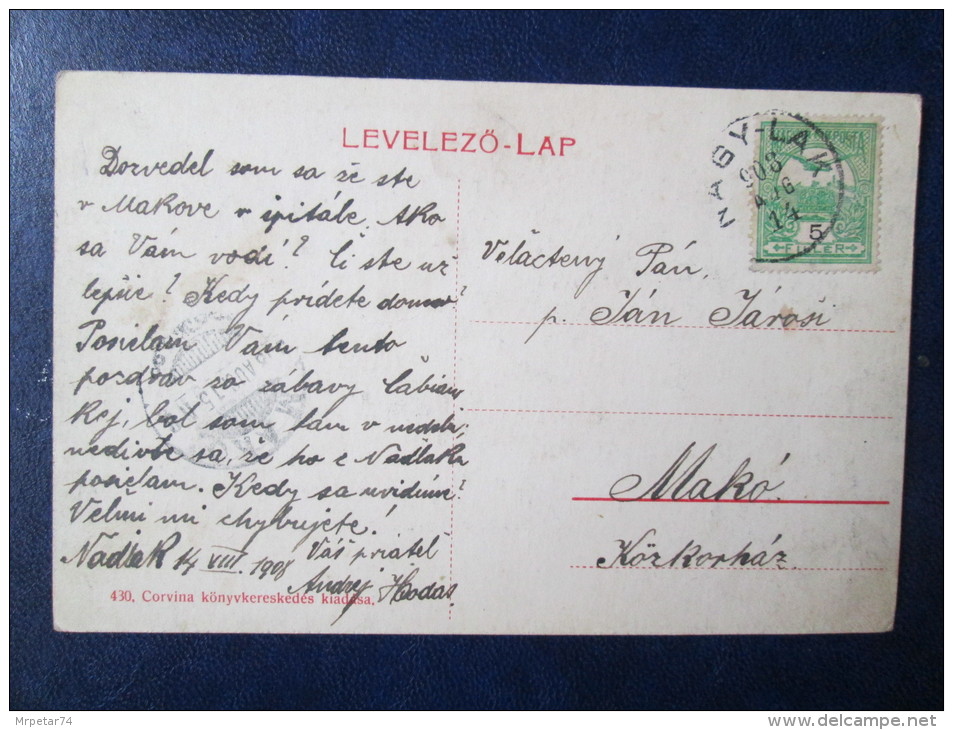 LEVELEZŐ-LAP
Dozvedel som sa že ste
v Makove v špitále. Ako
sa Vám vodí? Či ste už
lepšie? Kedy prídete domov?
Posielam Vám tento
pozdrav zo zábavy
kej, bol som tam v nedeľu,
nedivte sa, že ho z Nadlaku
posielam. Kedy sa uvidíme?
Veľmi mi chybujete!
Nadlak 14 VIII. 1908 Váš priateľ
Andrej Hodas.
430, Corvina könyvkereskedés kiadása.
NAGY-LAK
908
AUG
14
5
FILLÉR
Velactený Pán,
p. Ján Járosi
Makó.
Közkorház.
Mrpetar74